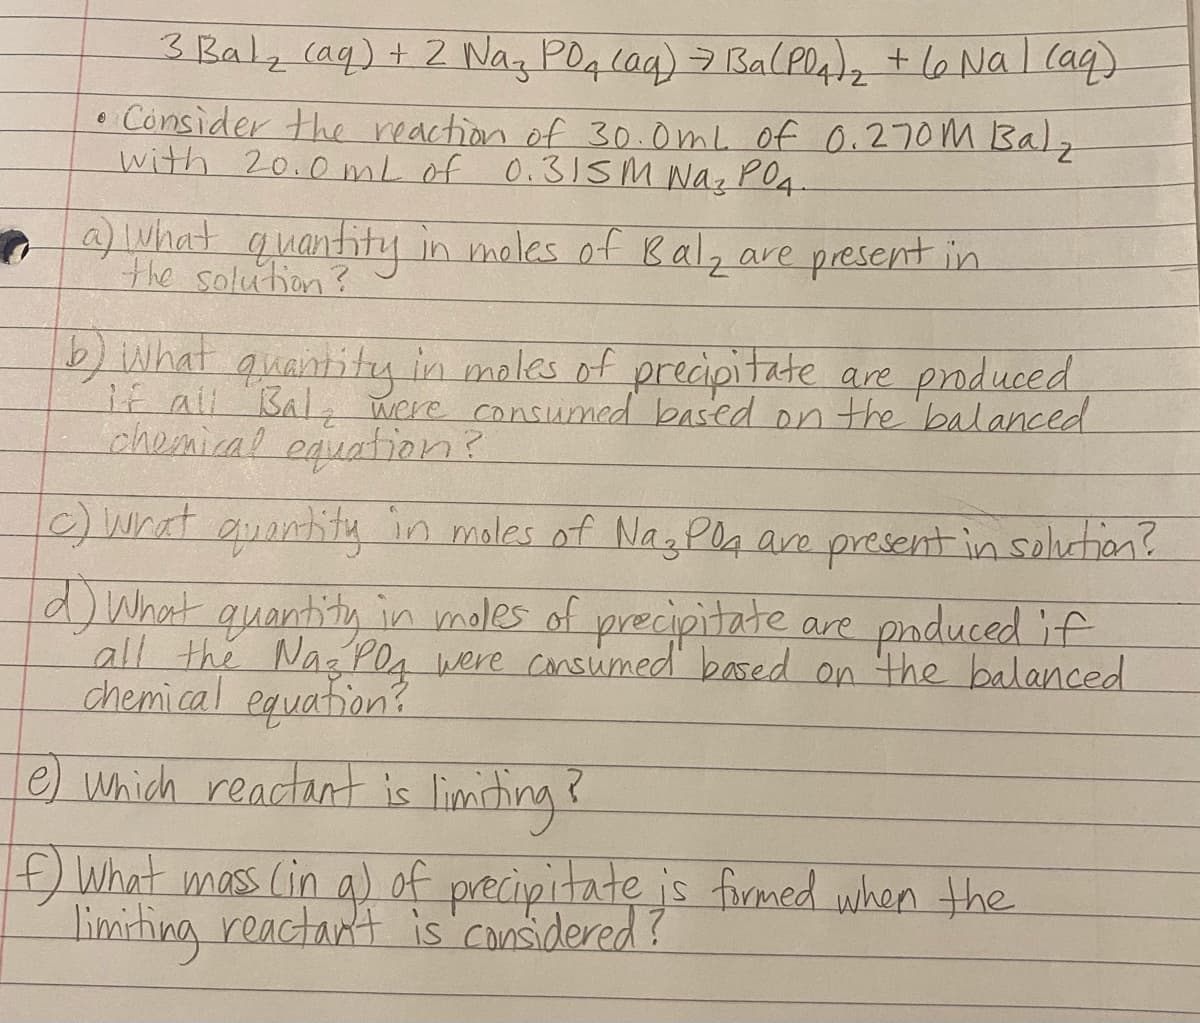 3 BaI₂ (aq) + 2 Na₃ PO₄ (aq) → Ba(PO₄)₂ + 6 Na I (aq)
• Consider the reaction of 30.0mL of 0.270M BaI₂
with 20.0 mL of 0.315M Na₃ PO₄.
a) What quantity in moles of BaI₂ are present in
the solution?
b) What quantity in moles of precipitate are produced
if all BaI₂ were consumed based on the balanced
chemical equation?
c) What quantity in moles of Na₃PO₄ are present in solution?
d) What quantity in moles of precipitate are produced if
all the Na₃PO₄ were consumed based on the balanced
chemical equation?
e) Which reactant is limiting?
f) What mass (in g) of precipitate is formed when the
limiting reactant is considered?